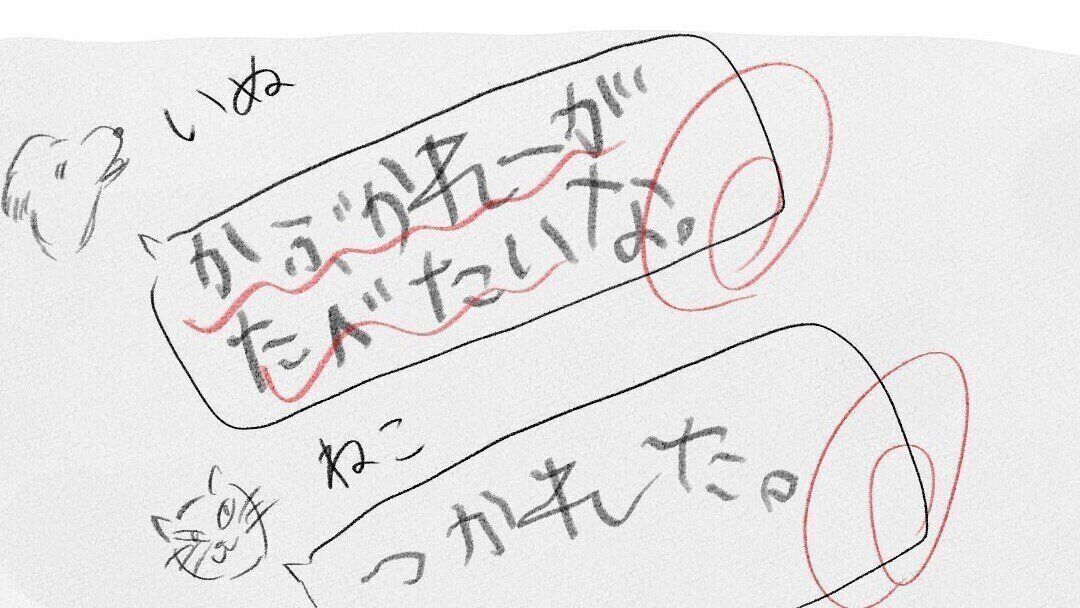 いぬ
かぶかれーが
たべたいな。
ねこ
つかれした。